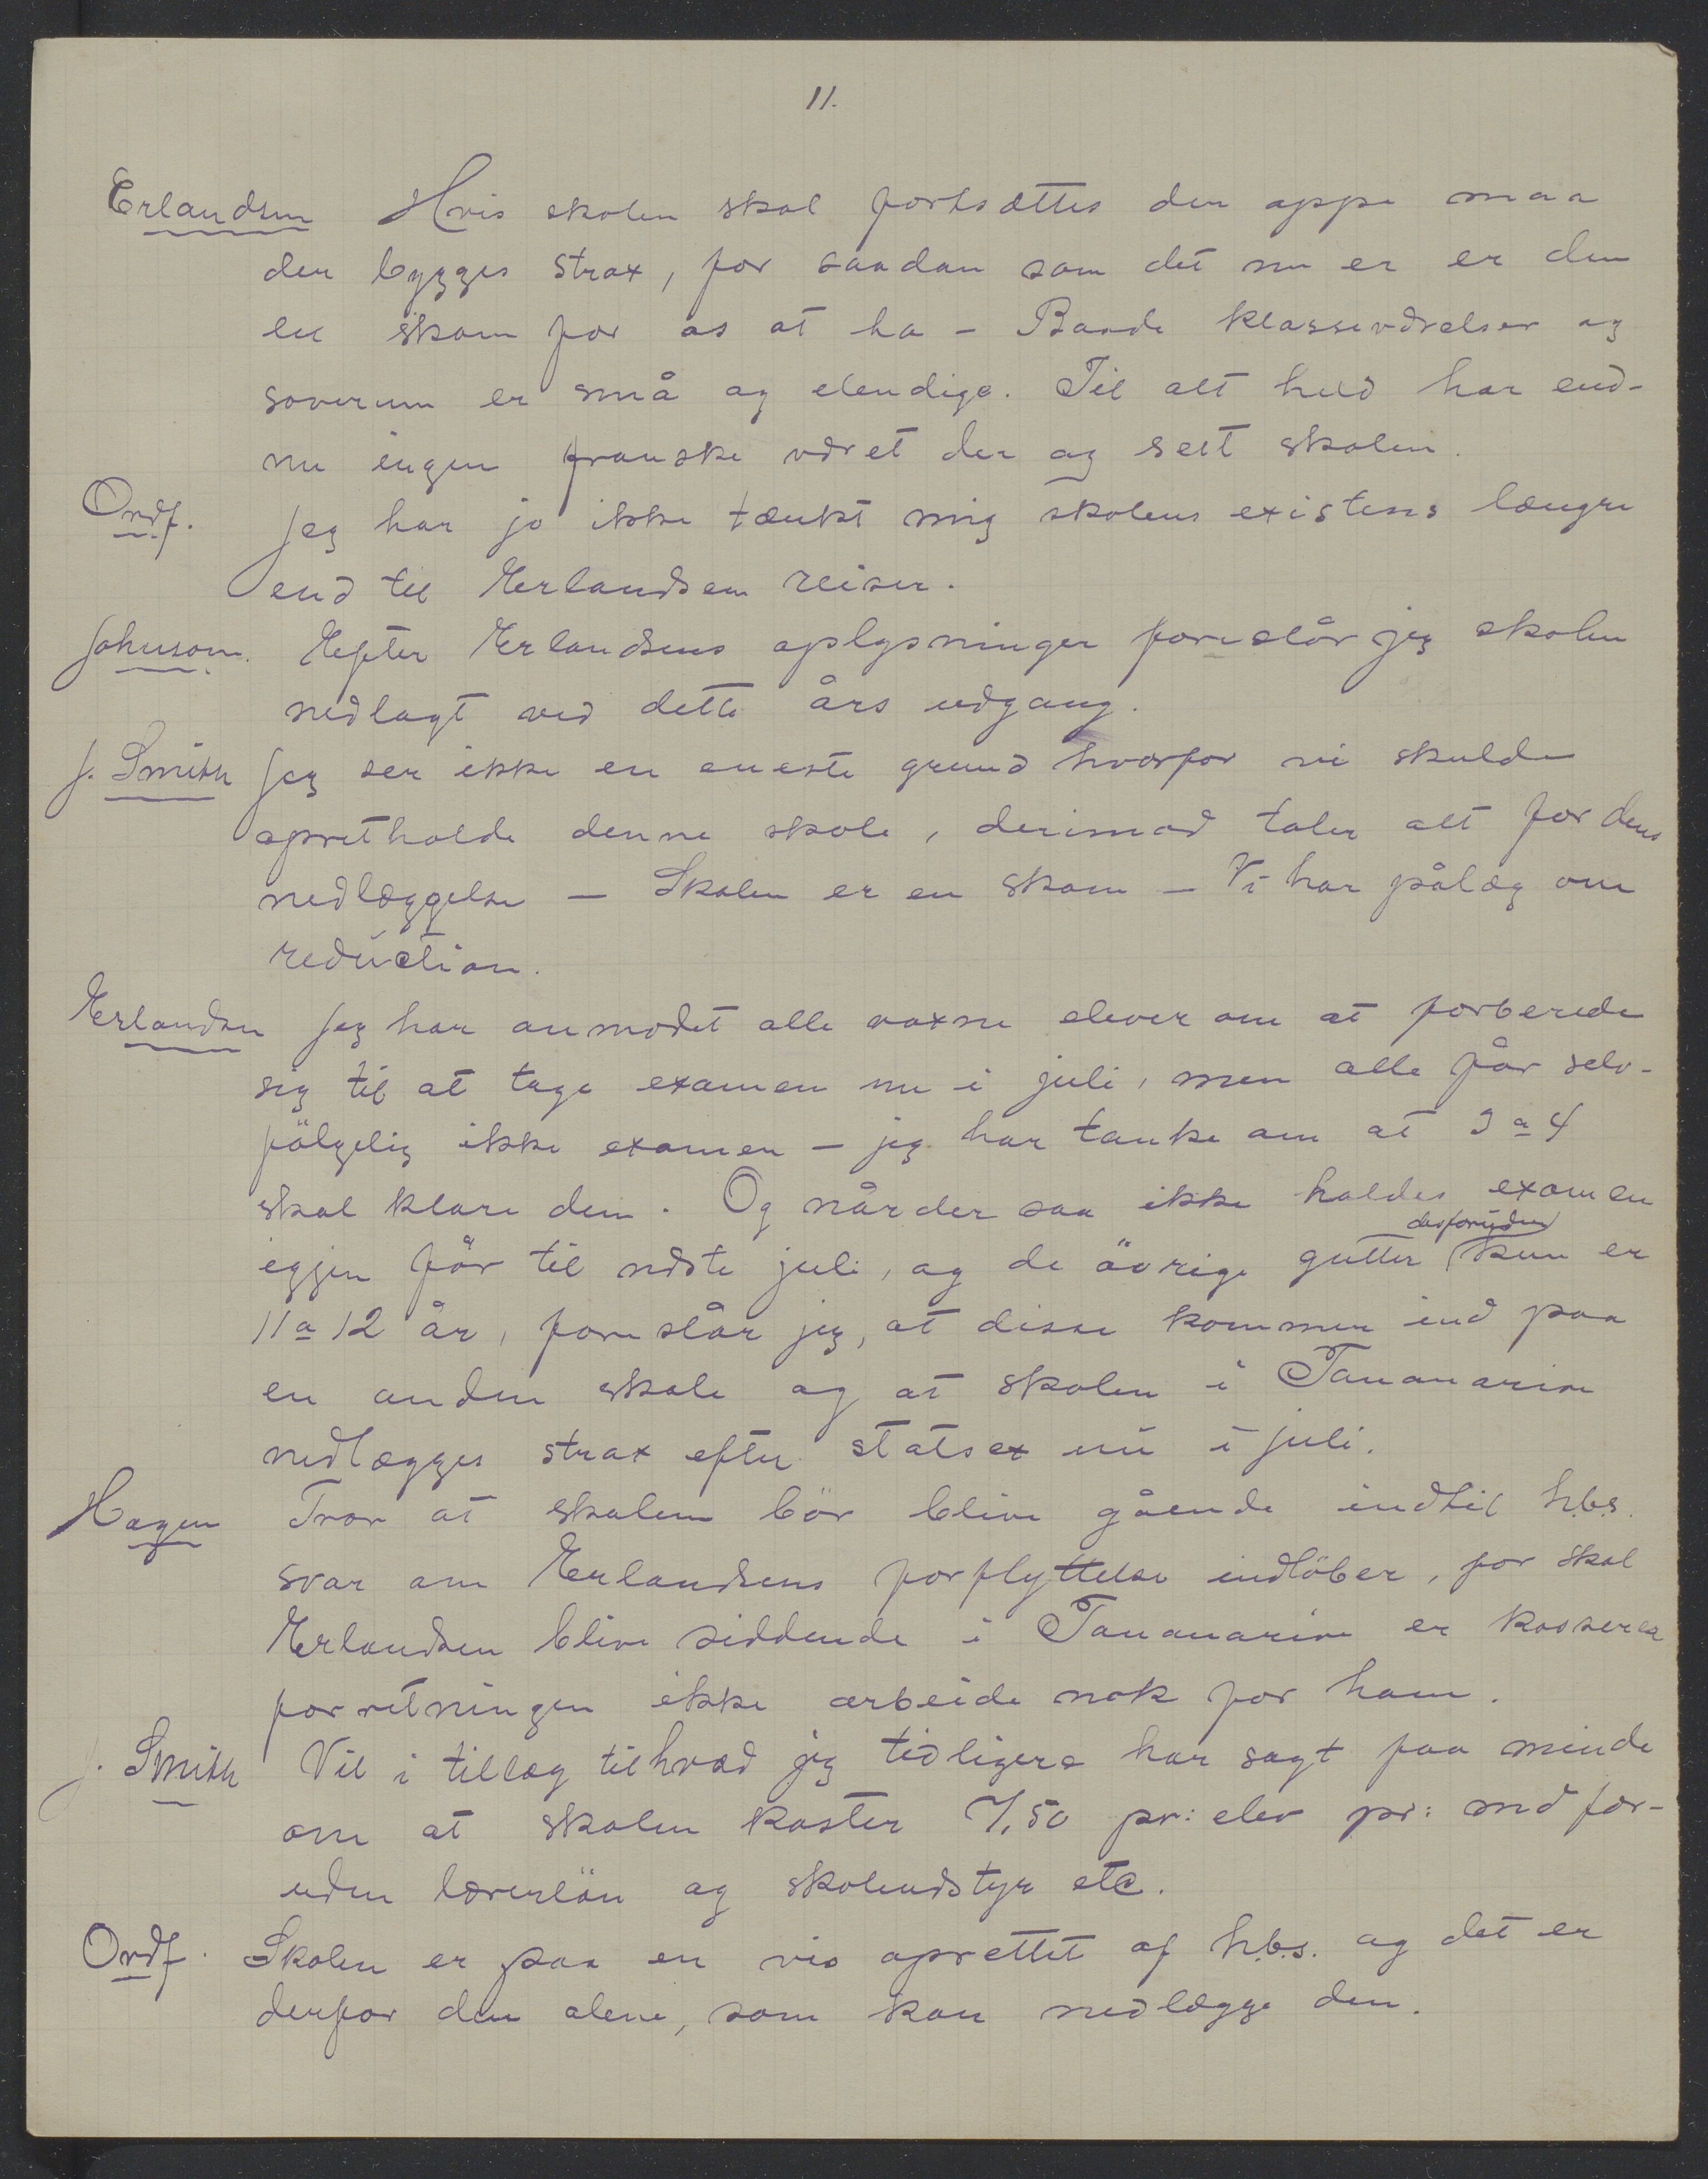 11.
Erlandsen Hvis skolen skal fortsættes der oppe maa
der bygges strax, for saadan som det nu er er den
en skam for os at ha – Baade klasseværelser og
soverum er små og elendige. Til alt held har end-
nu ingen franske været der og seet skolen.
Ordf. Jeg har jo ikke tænkt mig skolens existens længre
end til Erlandsen reiser.
Johnson. Efter Erlandsens oplysninger foreslår jeg skolen
nedlagt ved dette års udgang.
J. Smith Jeg ser ikke en eneste grund hvorfor vi skulde
opretholde denne skole, derimod taler alt for dens
nedlæggelse – Skolen er en skam – Vi har pålæg om
reduction.
Erlandsen Jeg har anmodet alle voxne elever om at forberede
sig til at tage examen nu i juli, men alle får selv-
fölgelig ikke examen – jeg har tanke om at 3 a 4
skal klare den. Og når der saa ikke holdes examen
desforuden
igjen för til næste juli, og de övrige gutter kun er
11 a 12 år, foreslår jeg, at disse kommer ind paa
en anden skole og at skolen i Tananarive
nedlægges strax efter statsex nu i juli.
Hagen Tror at skolen bör blive gående indtil h.b.s.
svar om Erlandsens forflyttelse indlöber, for skal
Erlandsen blive siddende i Tananarive er kasserer
forretningen ikke arbeide nok for ham.
J. Smith Vil i tillæg til hvad jeg tidligere har sagt faa minde
om at skolen koster 7,50 pr: elev pr: md for-
uden lærerlön og skoleudstyr etc.
Ordf. Skolen er paa en vis oprettet af h.b.s. og det er
derfor den alene, som kan nedlægge den.